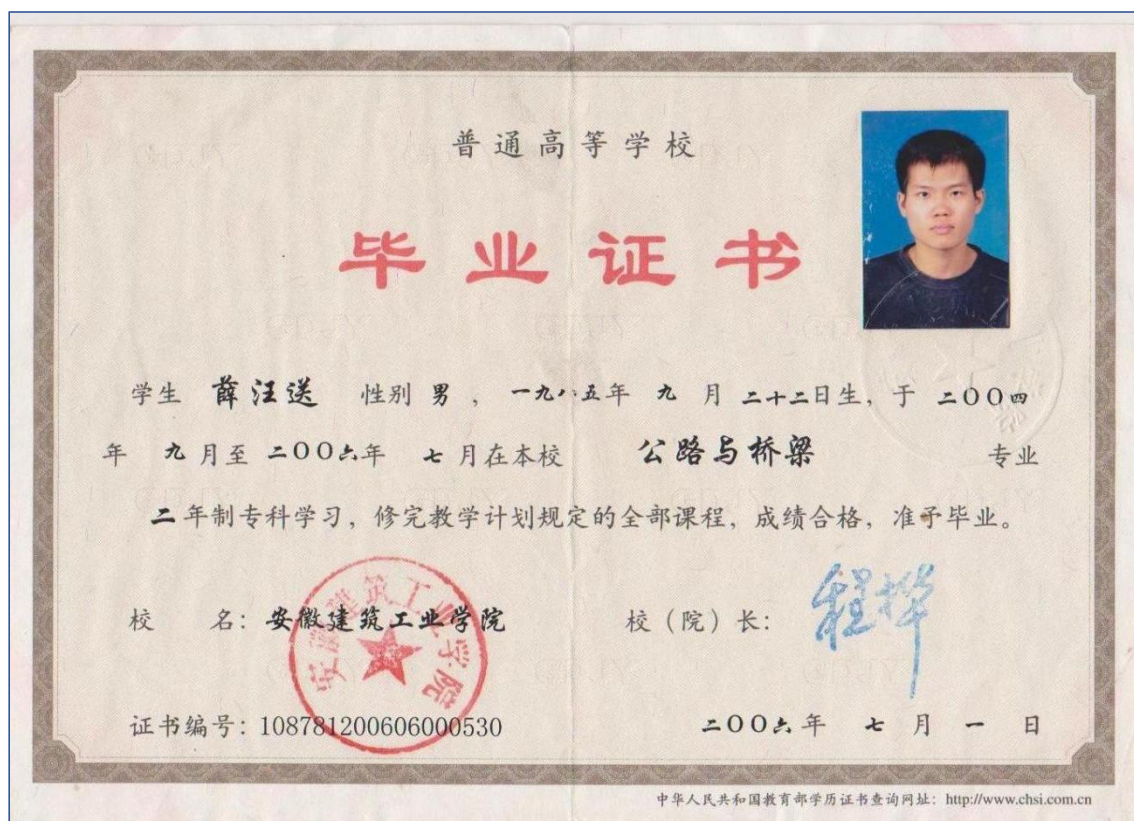 普通高等学校
毕业证书
学生 薛汪送 性别 男 , 一九八五年 九 月 二十二日生, 于 二〇〇四
年 九月至 二〇〇六年 七月在本校 公路与桥梁 专业
二年制专科学习, 修完教学计划规定的全部课程, 成绩合格, 准予毕业。
校 名: 安徽建筑工业学院
安徽建筑工业学院
校（院）长: 程桦
证书编号: 108781200606000530
二〇〇六年 七 月 一 日
中华人民共和国教育部学历证书查询网址: http://www.chsi.com.cn